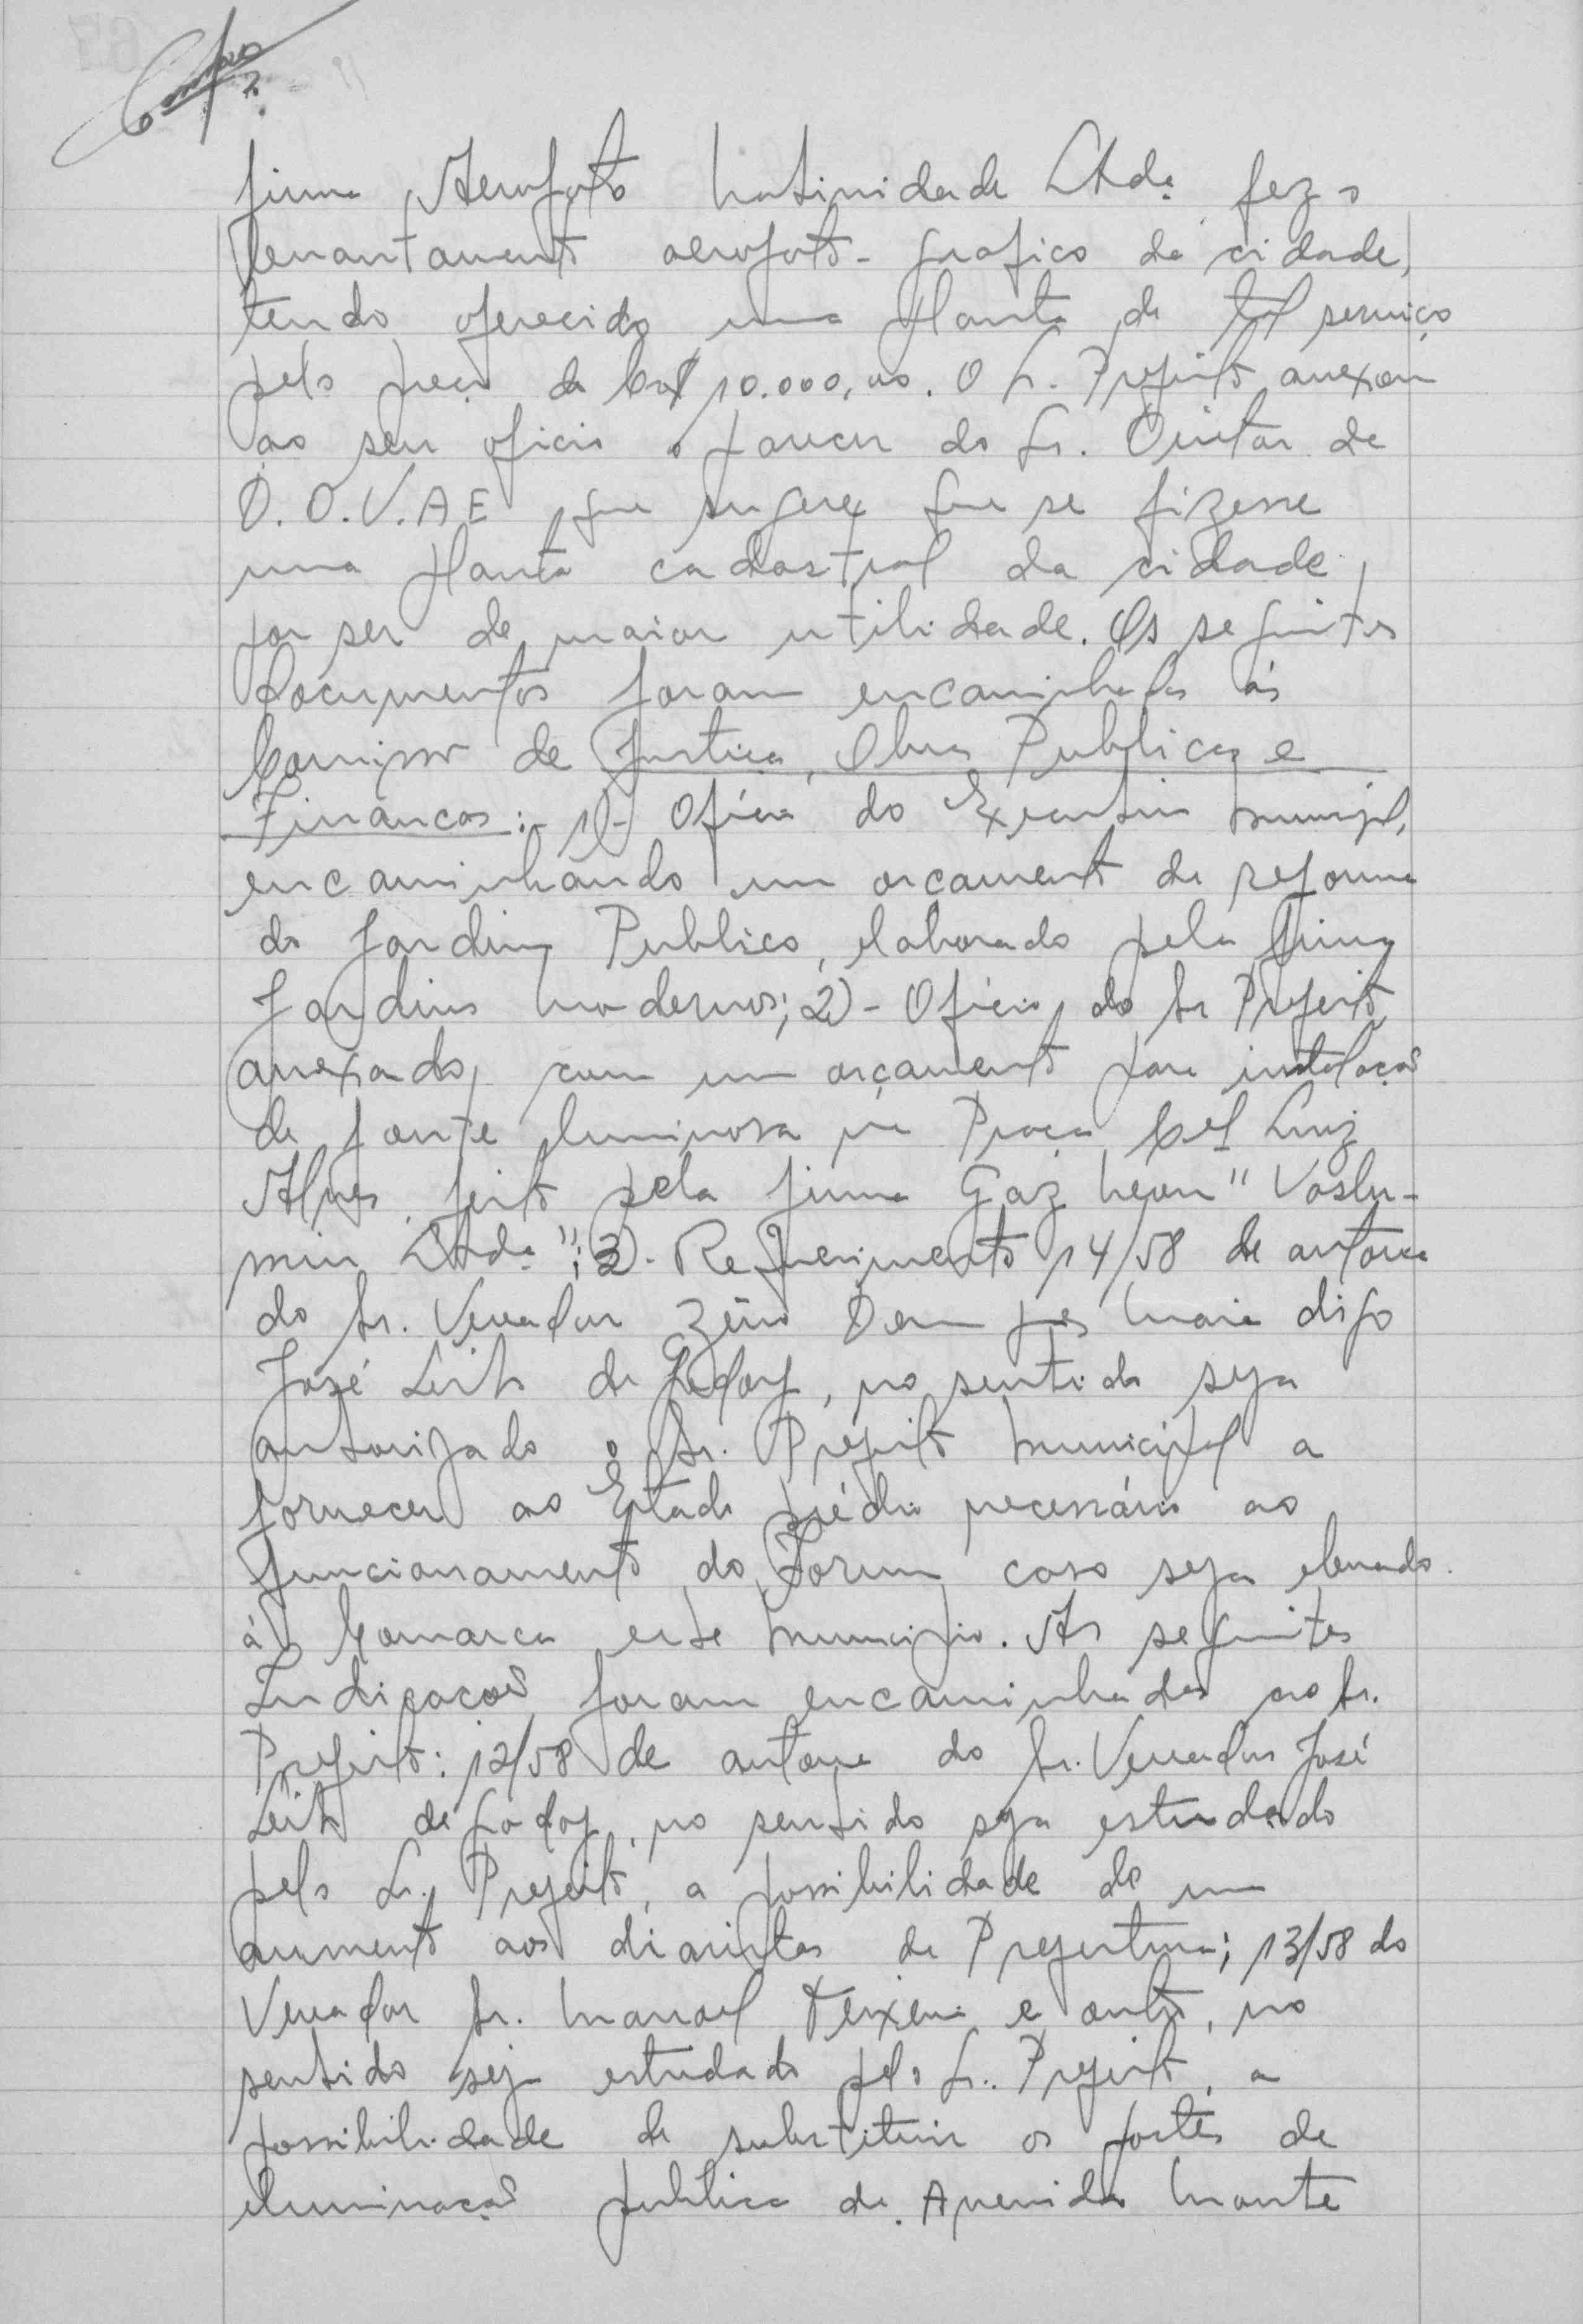 firma Aerofoto Natividade Ltda. fez o
levantamento aerofoto-grafico da cidade,
tendo oferecido uma planta de tal serviço
pelo preço de Cr$ 10.000,00. O Sr. Prefeito anexou
ao seu oficio o parecer do Sr. Diretor da
D.O.V.A E, que sugere que se fizesse
uma planta cadastral da cidade,
por ser de maior utilidade. Os seguintes
documentos foram encaminhados ás
Comissões de Justiça, Obras Publicas e
Finanças:- 1)- Ofício do Executivo Municipal,
encaminhando um orçamento da reforma
do Jardim Publico, elaborado pela firma
Jardins Modernos; 2)- Ofício do Sr Prefeito
anexado, com um orçamento para instalação
de fonte luminosa na Praça Cel Luiz
Alves, feito pela firma Gaz Neon "Vaslu-
min Ltda."; 3)- Requerimento 14/58 de autoria
do Sr. Vereador Zeno Maia digo
José Leite de Godoy, no sentido seja
autorizado o Sr. Prefeito Municipal a
fornecer ao Estado prédio necessário ao
funcionamento do Forum caso seja elevado
á Comarca este Município. As seguintes
Indicações foram encaminhadas ao Sr.
Prefeito: 12/58 de autoria do Sr. Vereador José
Leite de Godoy, no sentido seja estudado
pelo Sr. Prefeito, a possibilidade de um
aumento aos diaristas da Prefeitura; 13/58 do
Vereador Sr. Manoel Teixeira e outro, no
sentido seja estudado pelo Sr. Prefeito, a
possibilidade de substituir os postes de
iluminação publica da Avenida Monte